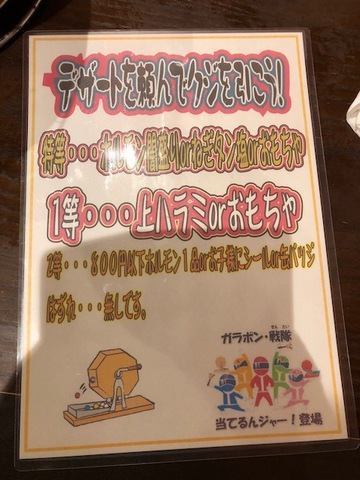 デザートを頼んでクジを引こう!
特等・・・ホルモン盛orねぎタン塩orおもちゃ
1等・・・上ハラミorおもちゃ
2等・・・800円以下ホルモン1品orお子様にシールor缶バッジ
はずれ・・・無しです。
ガラポン・戦隊
せんたい
当てるんジャー!登場